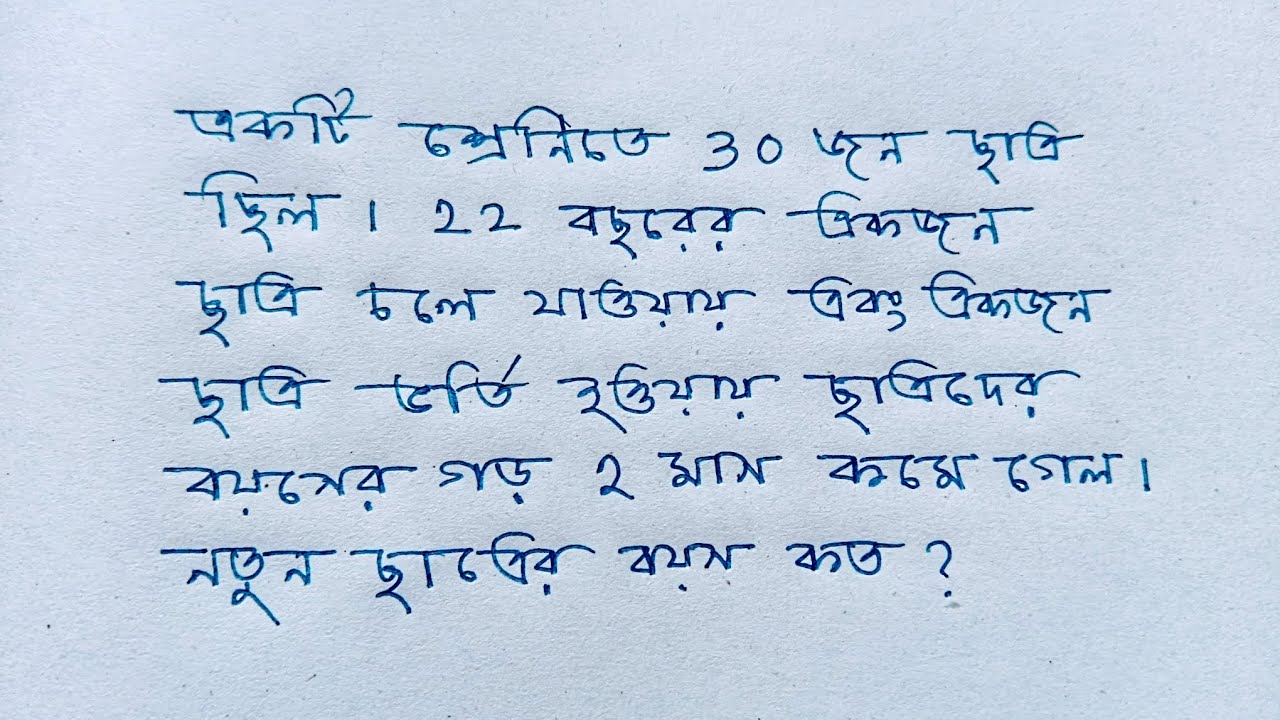 একটি শ্রেনিতে 30 জন ছাত্র
ছিল। 22 বছরের একজন
ছাত্র চলে যাওয়ায় এবং একজন
ছাত্র ভর্তি হওয়ায় ছাত্রদের
বয়সের গড় 2 মাস কমে গেল।
নতুন ছাত্রের বয়স কত ?